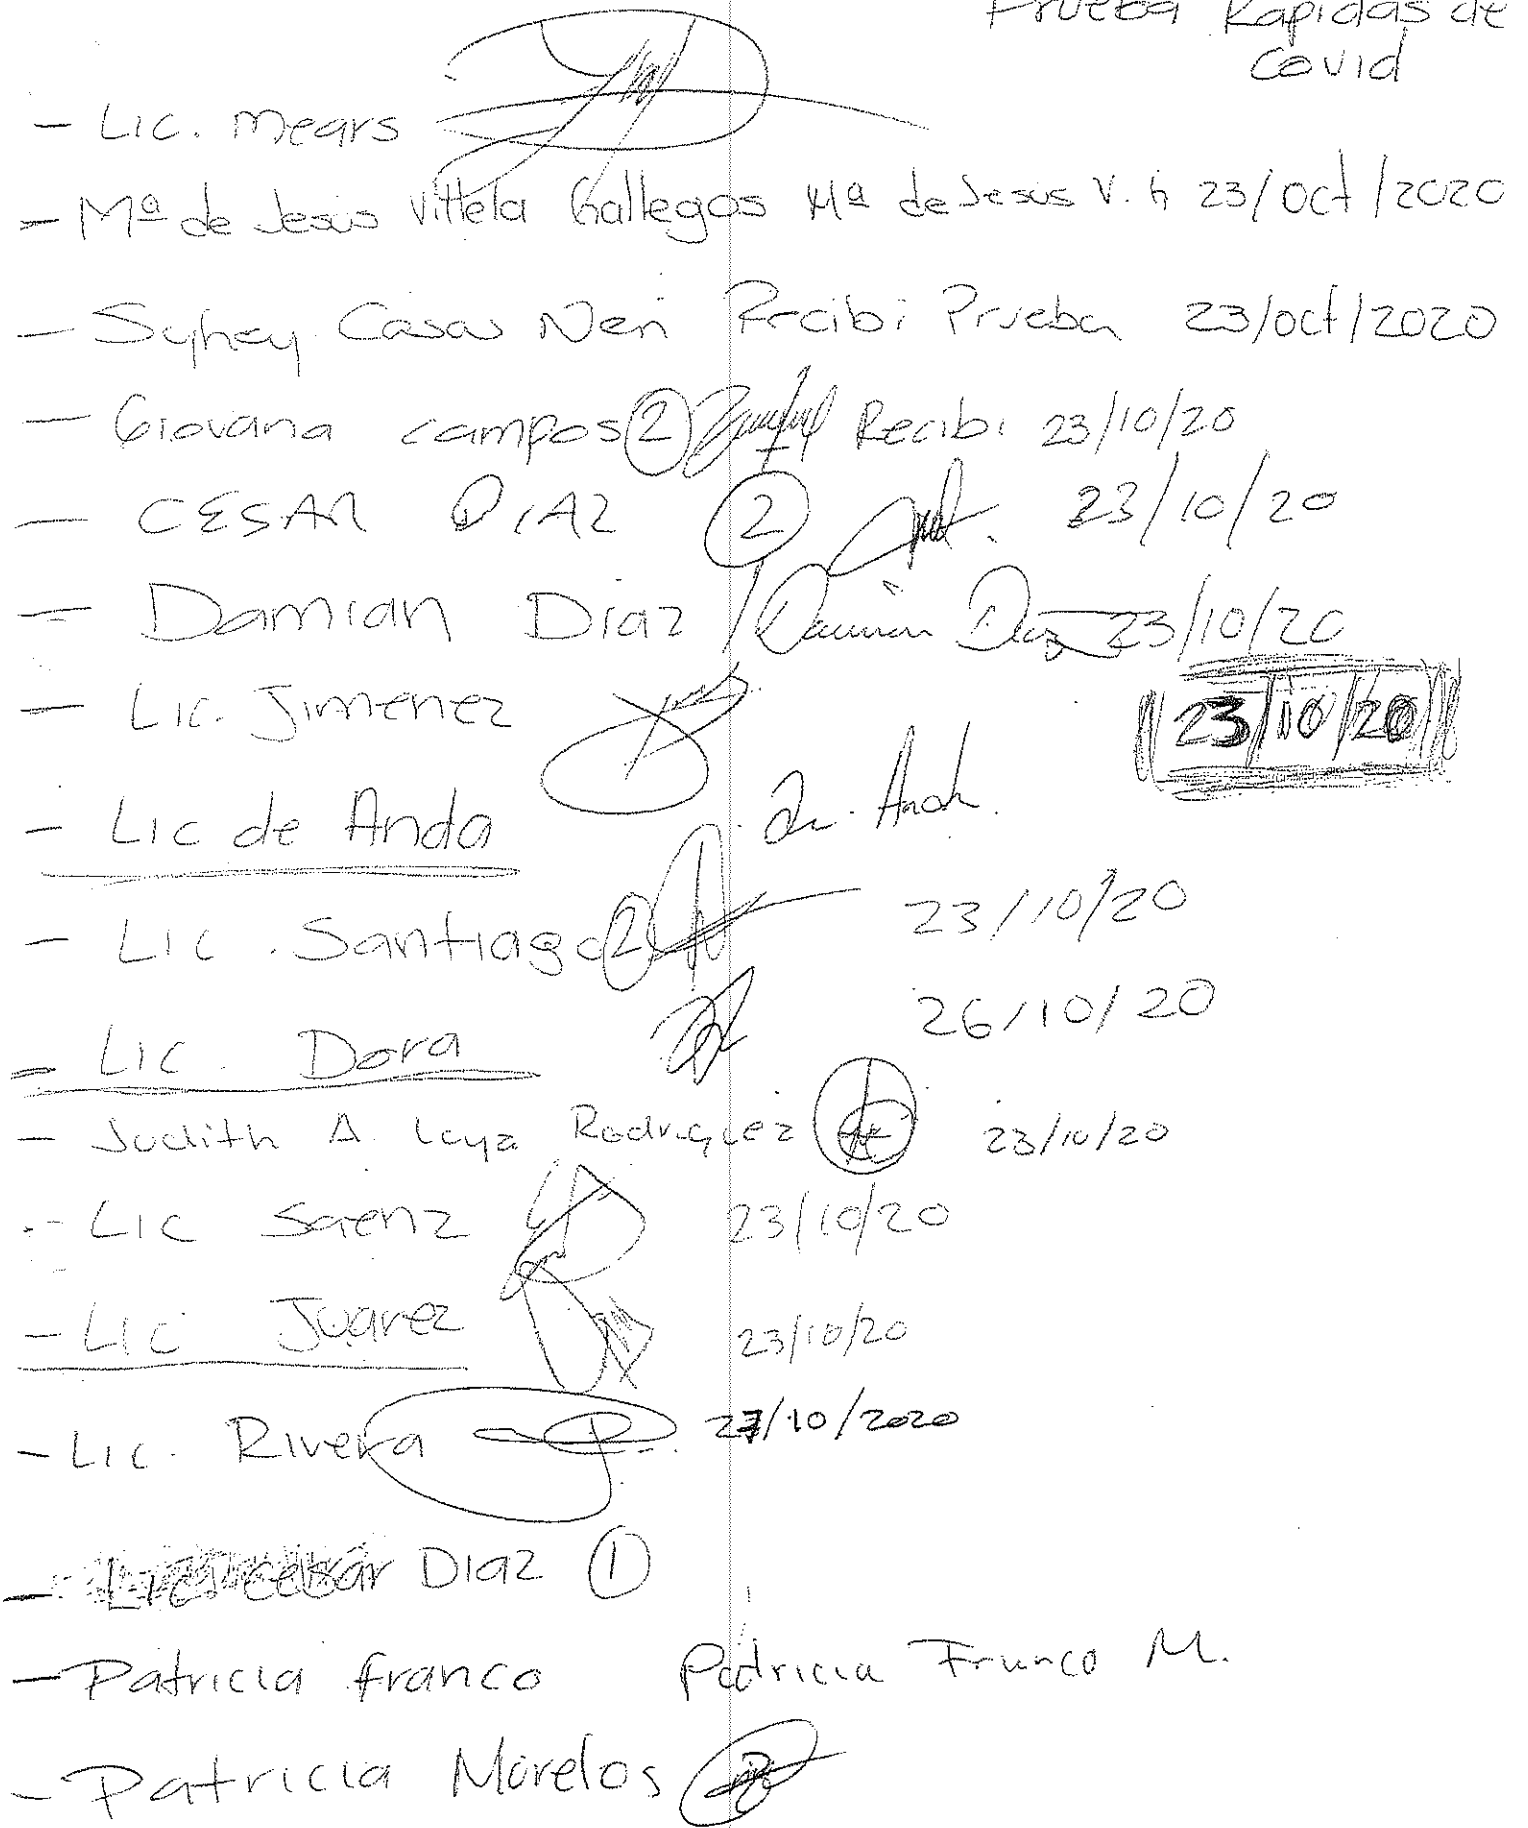 Prueba Rapidas de
Covid
- Lic. Mears
- Mª de Jesús Villela Gallegos Mª de Jesus V. G 23/Oct/2020
- Syhey Casas Neri Recibi Prueba 23/oct/2020
- Giovana campos 2 Recibi 23/10/20
- CESAR DIAZ 2 23/10/20
- Damian Diaz / Damian Diaz 23/10/20
- Lic. Jimenez 23/10/20
- Lic de Anda
- Lic. Santiago 2 23/10/20
- Lic. Dora 26/10/20
- Judith A. Loya Rodriguez 23/10/20
- Lic Saenz 23/10/20
- Lic Juarez 23/10/20
- Lic. Rivera 27/10/2020
- Lic. Cesar Diaz 1
- Patricia franco Patricia Franco M.
- Patricia Morelos